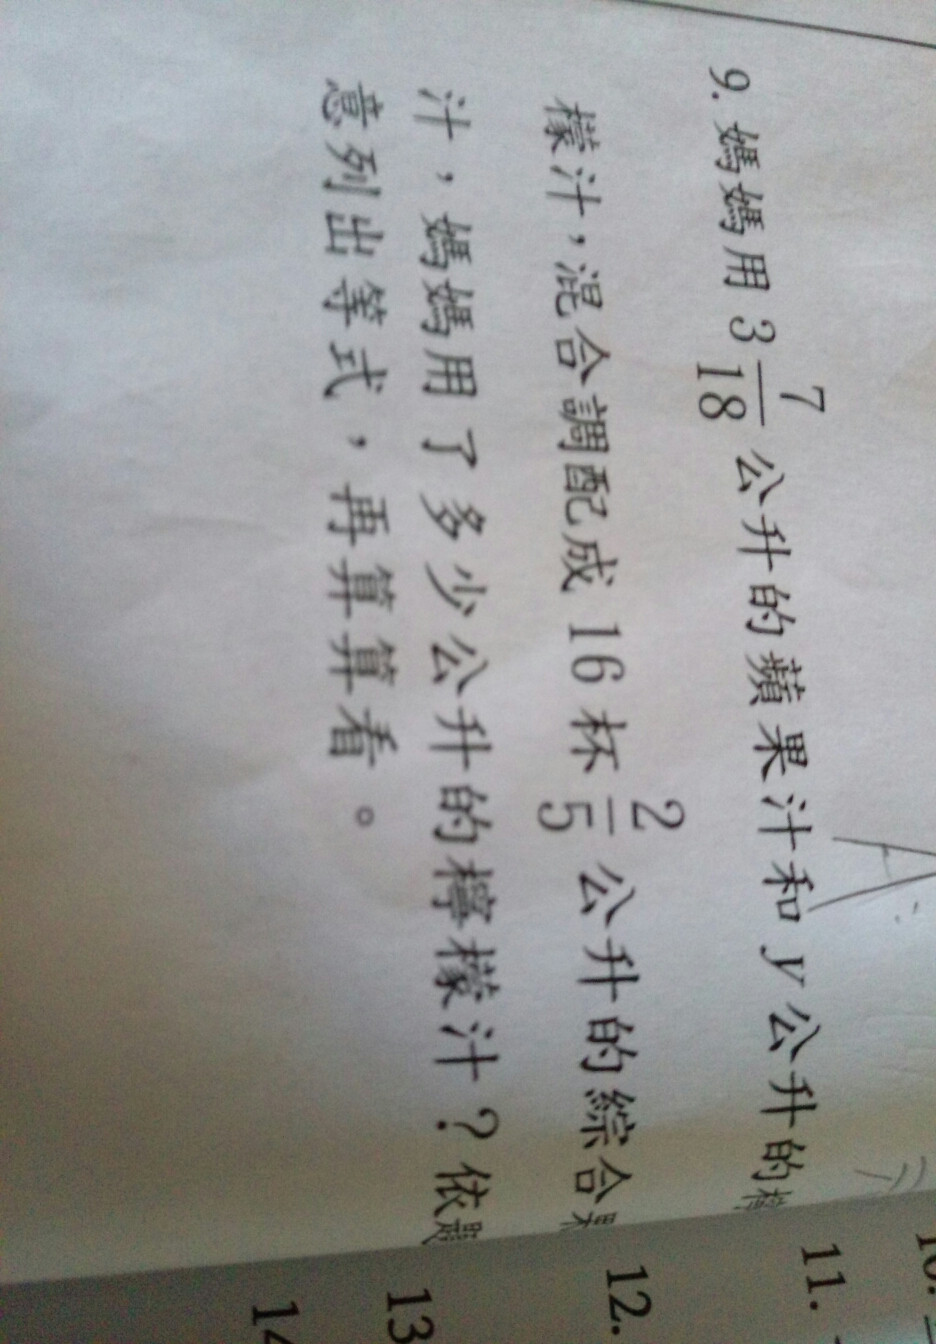 9. 媽媽用 3 7/18 公升的蘋果汁和 y 公升的檸
檬汁，混合調配成 16 杯 2/5 公升的綜合果
汁，媽媽用了多少公升的檸檬汁？依題
意列出等式，再算算看。
10.
11.
12.
13
14